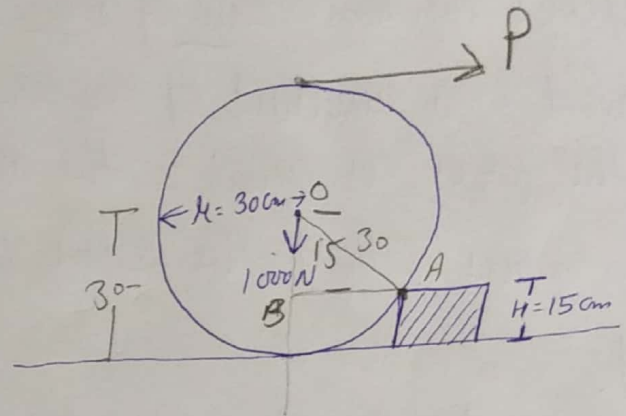 P
r = 30cm → O
15 30
1000N
A
B
30
H = 15 cm